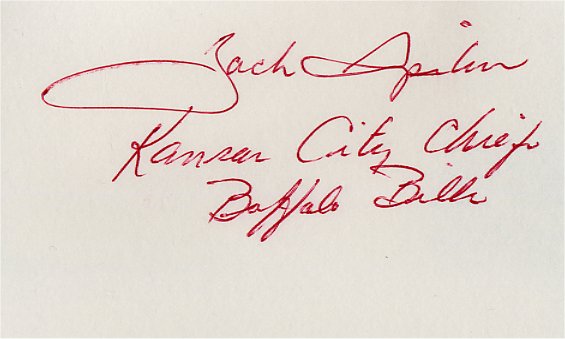 Jack Spikes
Kansas City Chiefs
Buffalo Bills